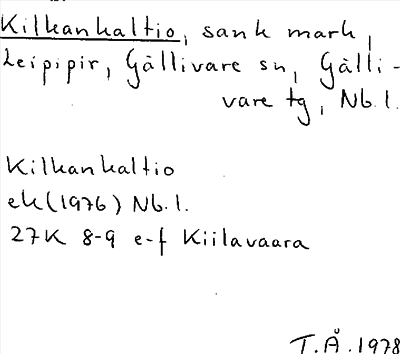 Kilkankaltio, sank mark,
Leipipir, Gällivare sn, Gälli-
vare tg, Nb.l.
Kilkankaltio
ek (1976) Nb.l.
27K 8-9 e-f Kiilavaara
T.Å. 1978